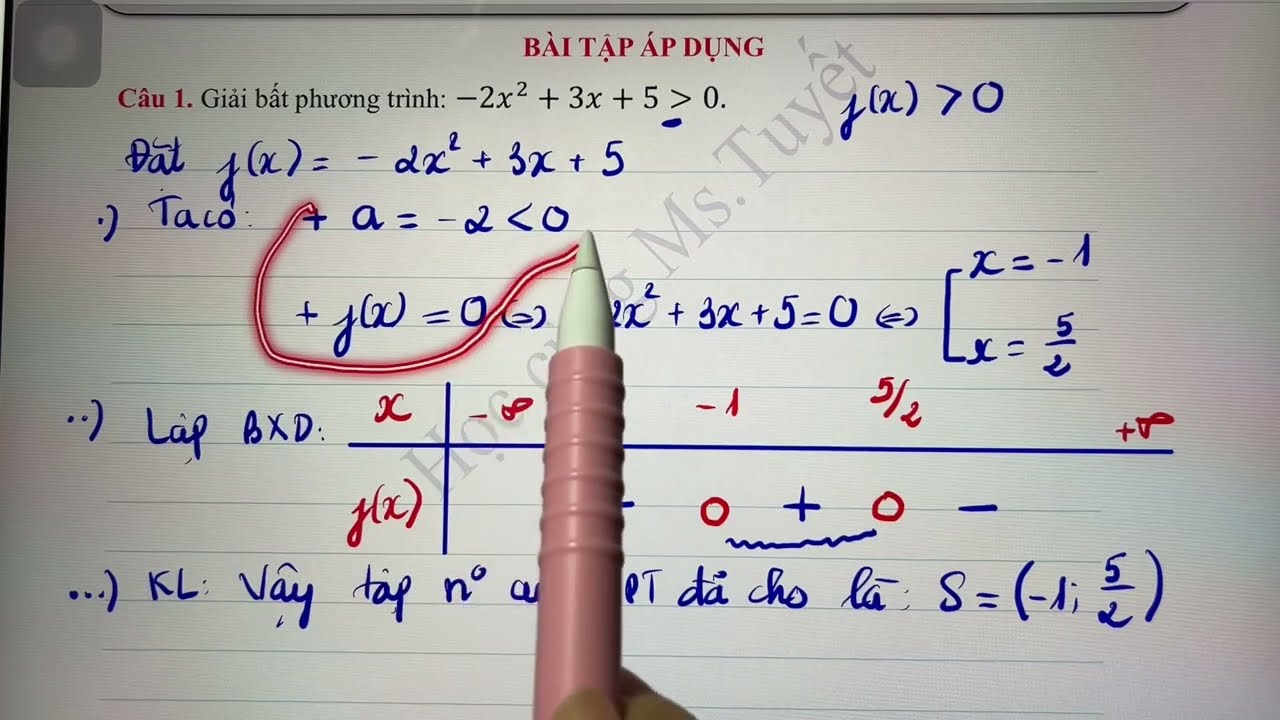 BÀI TẬP ÁP DỤNG
Câu 1. Giải bất phương trình: −2x² + 3x + 5 > 0. f(x) > 0
Đặt f(x) = - 2x² + 3x + 5
.) Ta có: + a = -2 < 0
+ f(x) = 0 ⇔ 2x² + 3x + 5 = 0 ⇔ [ x = -1
x = 5/2
..) Lập BXD: x -∞ -1 5/2 +∞
f(x) - 0 + 0 -
...) KL: Vậy tập n° PT đã cho là: S = (-1; 5/2)
Học cùng Ms.Tuyết